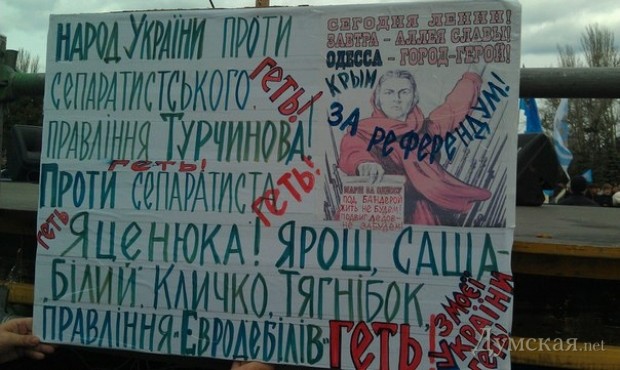 НАРОД УКРАЇНИ ПРОТИ
СЕПАРАТИСТСЬКОГО
ПРАВЛІННЯ ТУРЧИНОВА!
ГЕТЬ!
ГЕТЬ!
ПРОТИ СЕПАРАТИСТА
ГЕТЬ!
ГЕТЬ
ЯЦЕНЮКА! ЯРОШ, САША-
БІЛИЙ. КЛИЧКО, ТЯГНІБОК,
ПРАВЛІННЯ-ЕВРОДЕБІЛІВ-ГЕТЬ!
З МОЄЇ
УКРАЇНИ
ГЕТЬ!
СЕГОДНЯ ЛЕНИН!
ЗАВТРА - АЛЛЕЯ СЛАВЫ!
ОДЕССА - ГОРОД-ГЕРОЙ!
КРЫМ
ЗА РЕФЕРЕНДУМ!
ПОД БАНДЕРОЙ
ЖИТЬ НЕ БУДЕМ
ПОДВИГ ДЕДОВ-
НЕ ЗАБУДЕМ
Думская.net